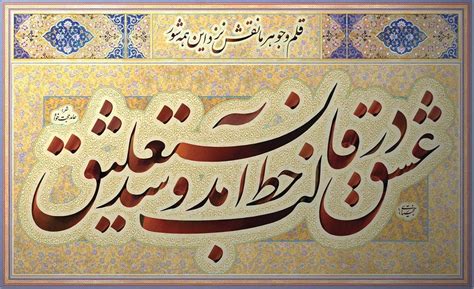 قلم و جوهر ما نقش نزد این همه شور
عشق در قالب خط آمد و شد نستعلیق